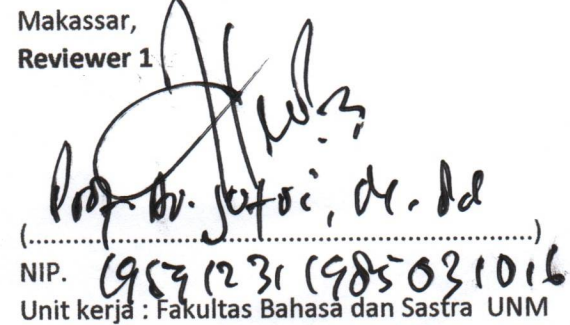 Makassar,
Reviewer 1
Prof. Dr. , M. Pd
(..............................................................................)
NIP. 19591231 198503 1 016
Unit kerja : Fakultas Bahasa dan Sastra UNM